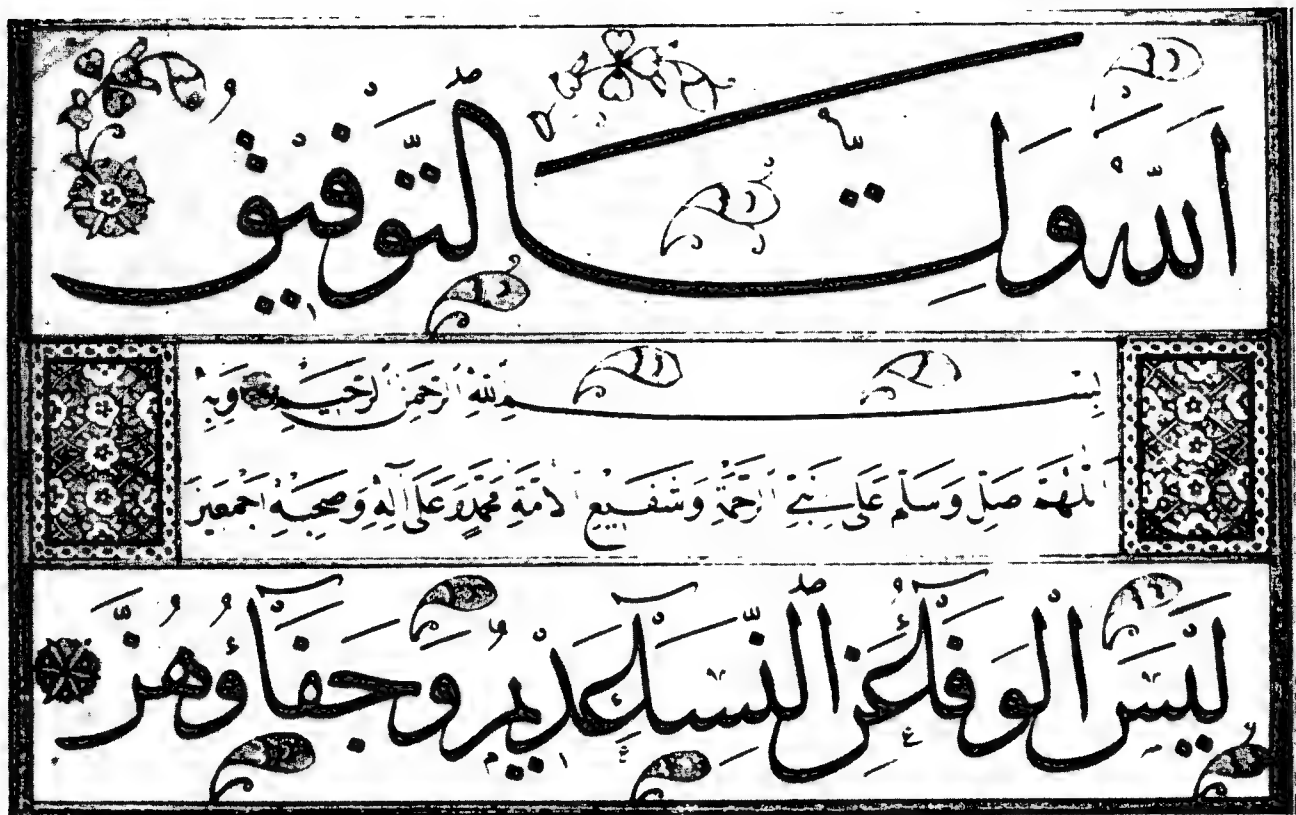 الله ولي التوفيق
بسم الله الرحمن الرحيم وبه
اللهم صل وسلم على نبي الرحمة وشفيع الأمة محمد وعلى آله وصحبه اجمعين
ليس الوفاء عن النساء عديم وجفاؤهن